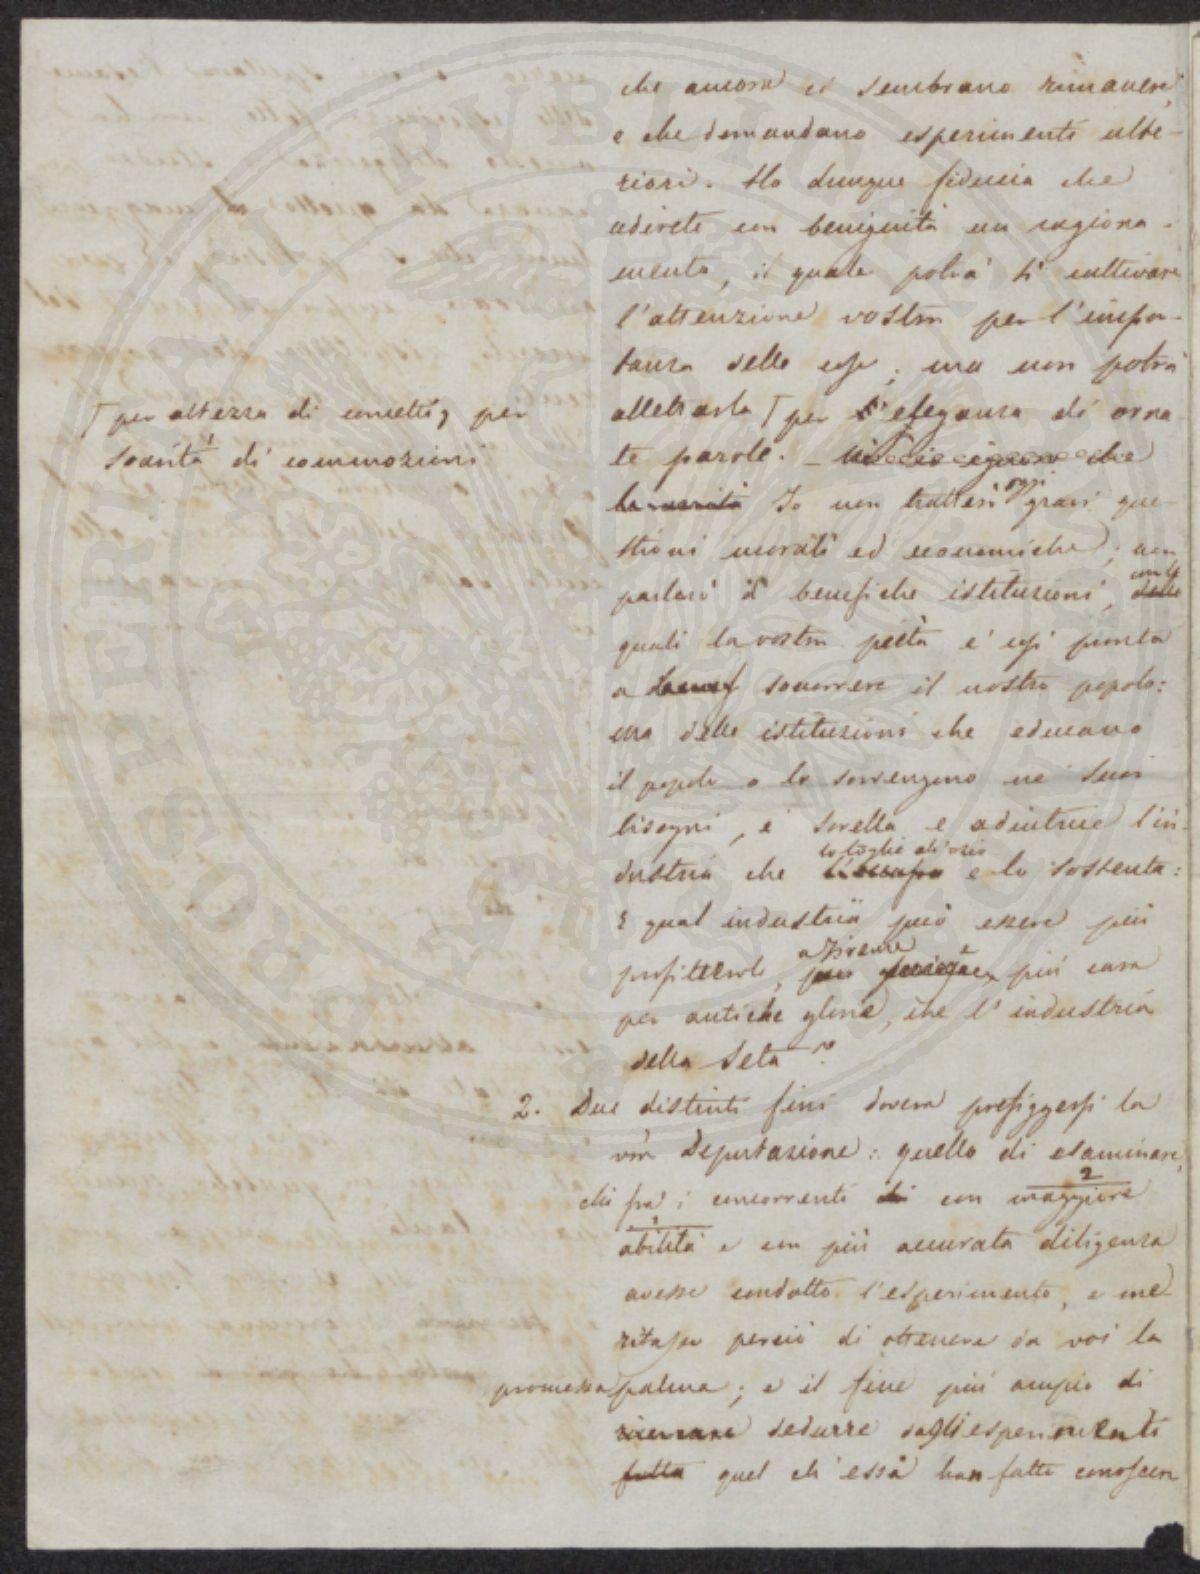 che ancora ci sembrano rimanere,
e che domandano esperimenti ulte-
riori. Ho dunque fiducia che
udirete con benignità un ragiona-
mento, il quale potrà sì cattivare
l'attenzione vostra per l'impor-
tanza delle cose; ma non potrà
allettarla ⌈ per l'eleganza di orna-
⌈ per altezza di concetti, per
soavità di commozioni
te parole. - che
la verità Io non tratterò oggi gravi que-
stioni morali ed economiche; non
parlerò di benefiche istituzioni, delle con le
quali la vostra pietà è così pronta
a soccorrere il nostro popolo:
ma delle istituzioni che educano
il popolo o lo sovvengono ne' suoi
bisogni, è sorella e adiutrice l'in-
dustria che l'occupa lo toglie all'ozio e lo sostenta:
E qual industria può essere più
profittevole, a Firenze più cara
per antiche glorie, che l'industria
della Seta?
2. Due distinti fini dovea prefiggersi la
vra Deputazione: quello di esaminare,
chi fra' i concorrenti di con maggiore 2
abilità 1 e con più accurata diligenza
avesse condotto l'esperimento, e me-
ritasse perciò di ottenere da voi la
promessa palma; e il fine più ampio di
ricavare dedurre dagli esperimenti
fatta quel ch'essi han fatto conoscere